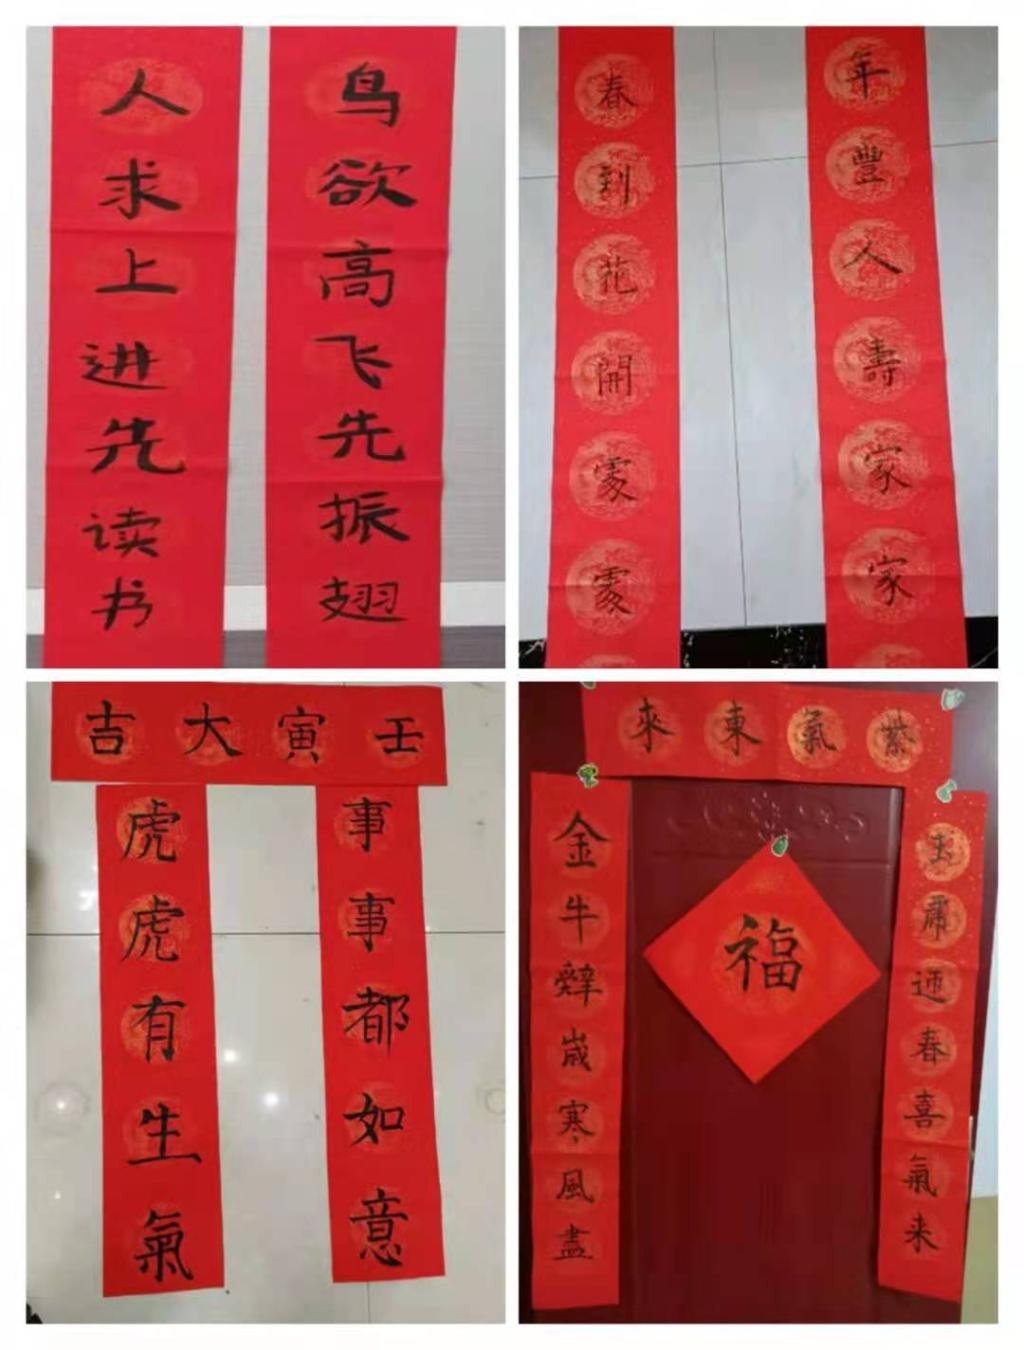 鸟欲高飞先振翅
人求上进先读书
年豐人壽家家
春到花開處處
壬寅大吉
事事都如意
虎虎有生氣
紫氣東來
玉虎迎春喜氣来
金牛辭歲寒風盡
福